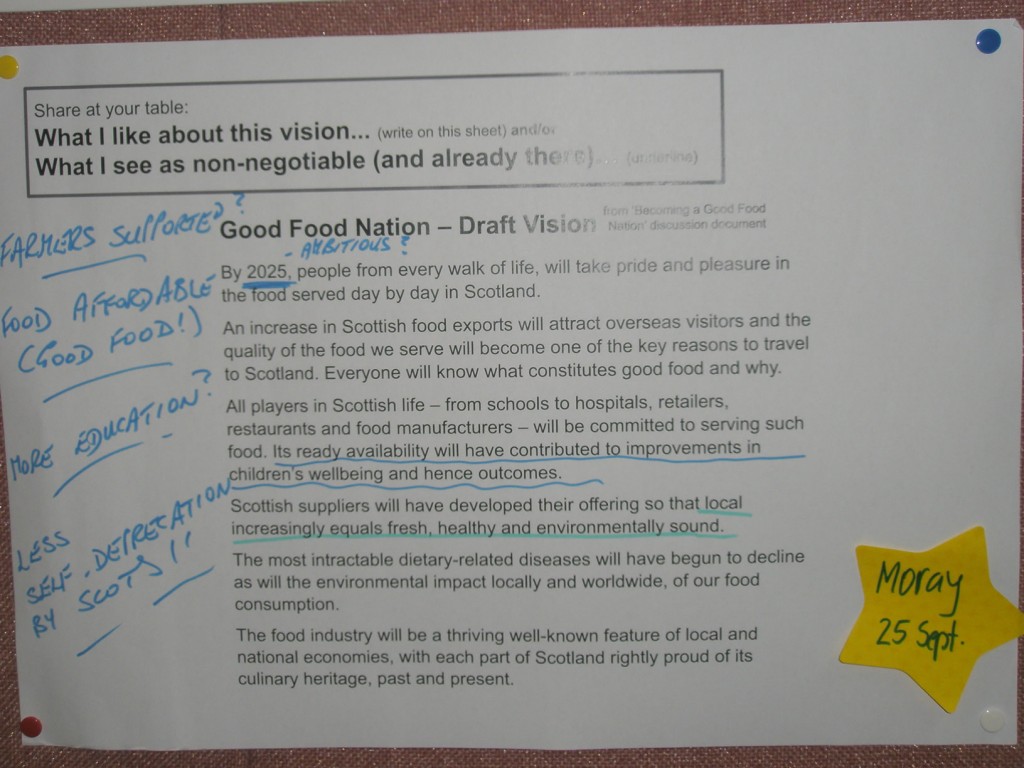 Share at your table:
What I like about this vision... (write on this sheet) and/or
What I see as non-negotiable (and already there)... (underline)
Good Food Nation – Draft Vision
from 'Becoming a Good Food
Nation' discussion document
- AMBITIOUS ?
By 2025, people from every walk of life, will take pride and pleasure in
the food served day by day in Scotland.
An increase in Scottish food exports will attract overseas visitors and the
quality of the food we serve will become one of the key reasons to travel
to Scotland. Everyone will know what constitutes good food and why.
All players in Scottish life – from schools to hospitals, retailers,
restaurants and food manufacturers – will be committed to serving such
food. Its ready availability will have contributed to improvements in
children's wellbeing and hence outcomes.
Scottish suppliers will have developed their offering so that local
increasingly equals fresh, healthy and environmentally sound.
The most intractable dietary-related diseases will have begun to decline
as will the environmental impact locally and worldwide, of our food
consumption.
The food industry will be a thriving well-known feature of local and
national economies, with each part of Scotland rightly proud of its
culinary heritage, past and present.
FARMERS SUPPORTED ?
FOOD AFFORDABLE
(GOOD FOOD!)
MORE EDUCATION ?
LESS
SELF-DEPRECATION
BY SCOTS!!
Moray
25 Sept.